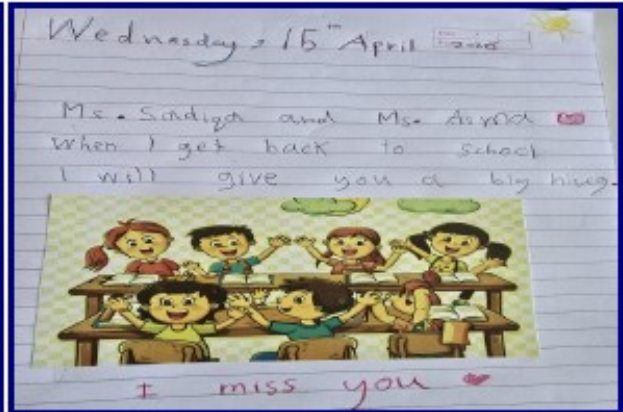 Wednesday, 15th April 2020
Ms. Sadiqa and Ms. Asma
When I get back to school
I will give you a big hug.
I miss you